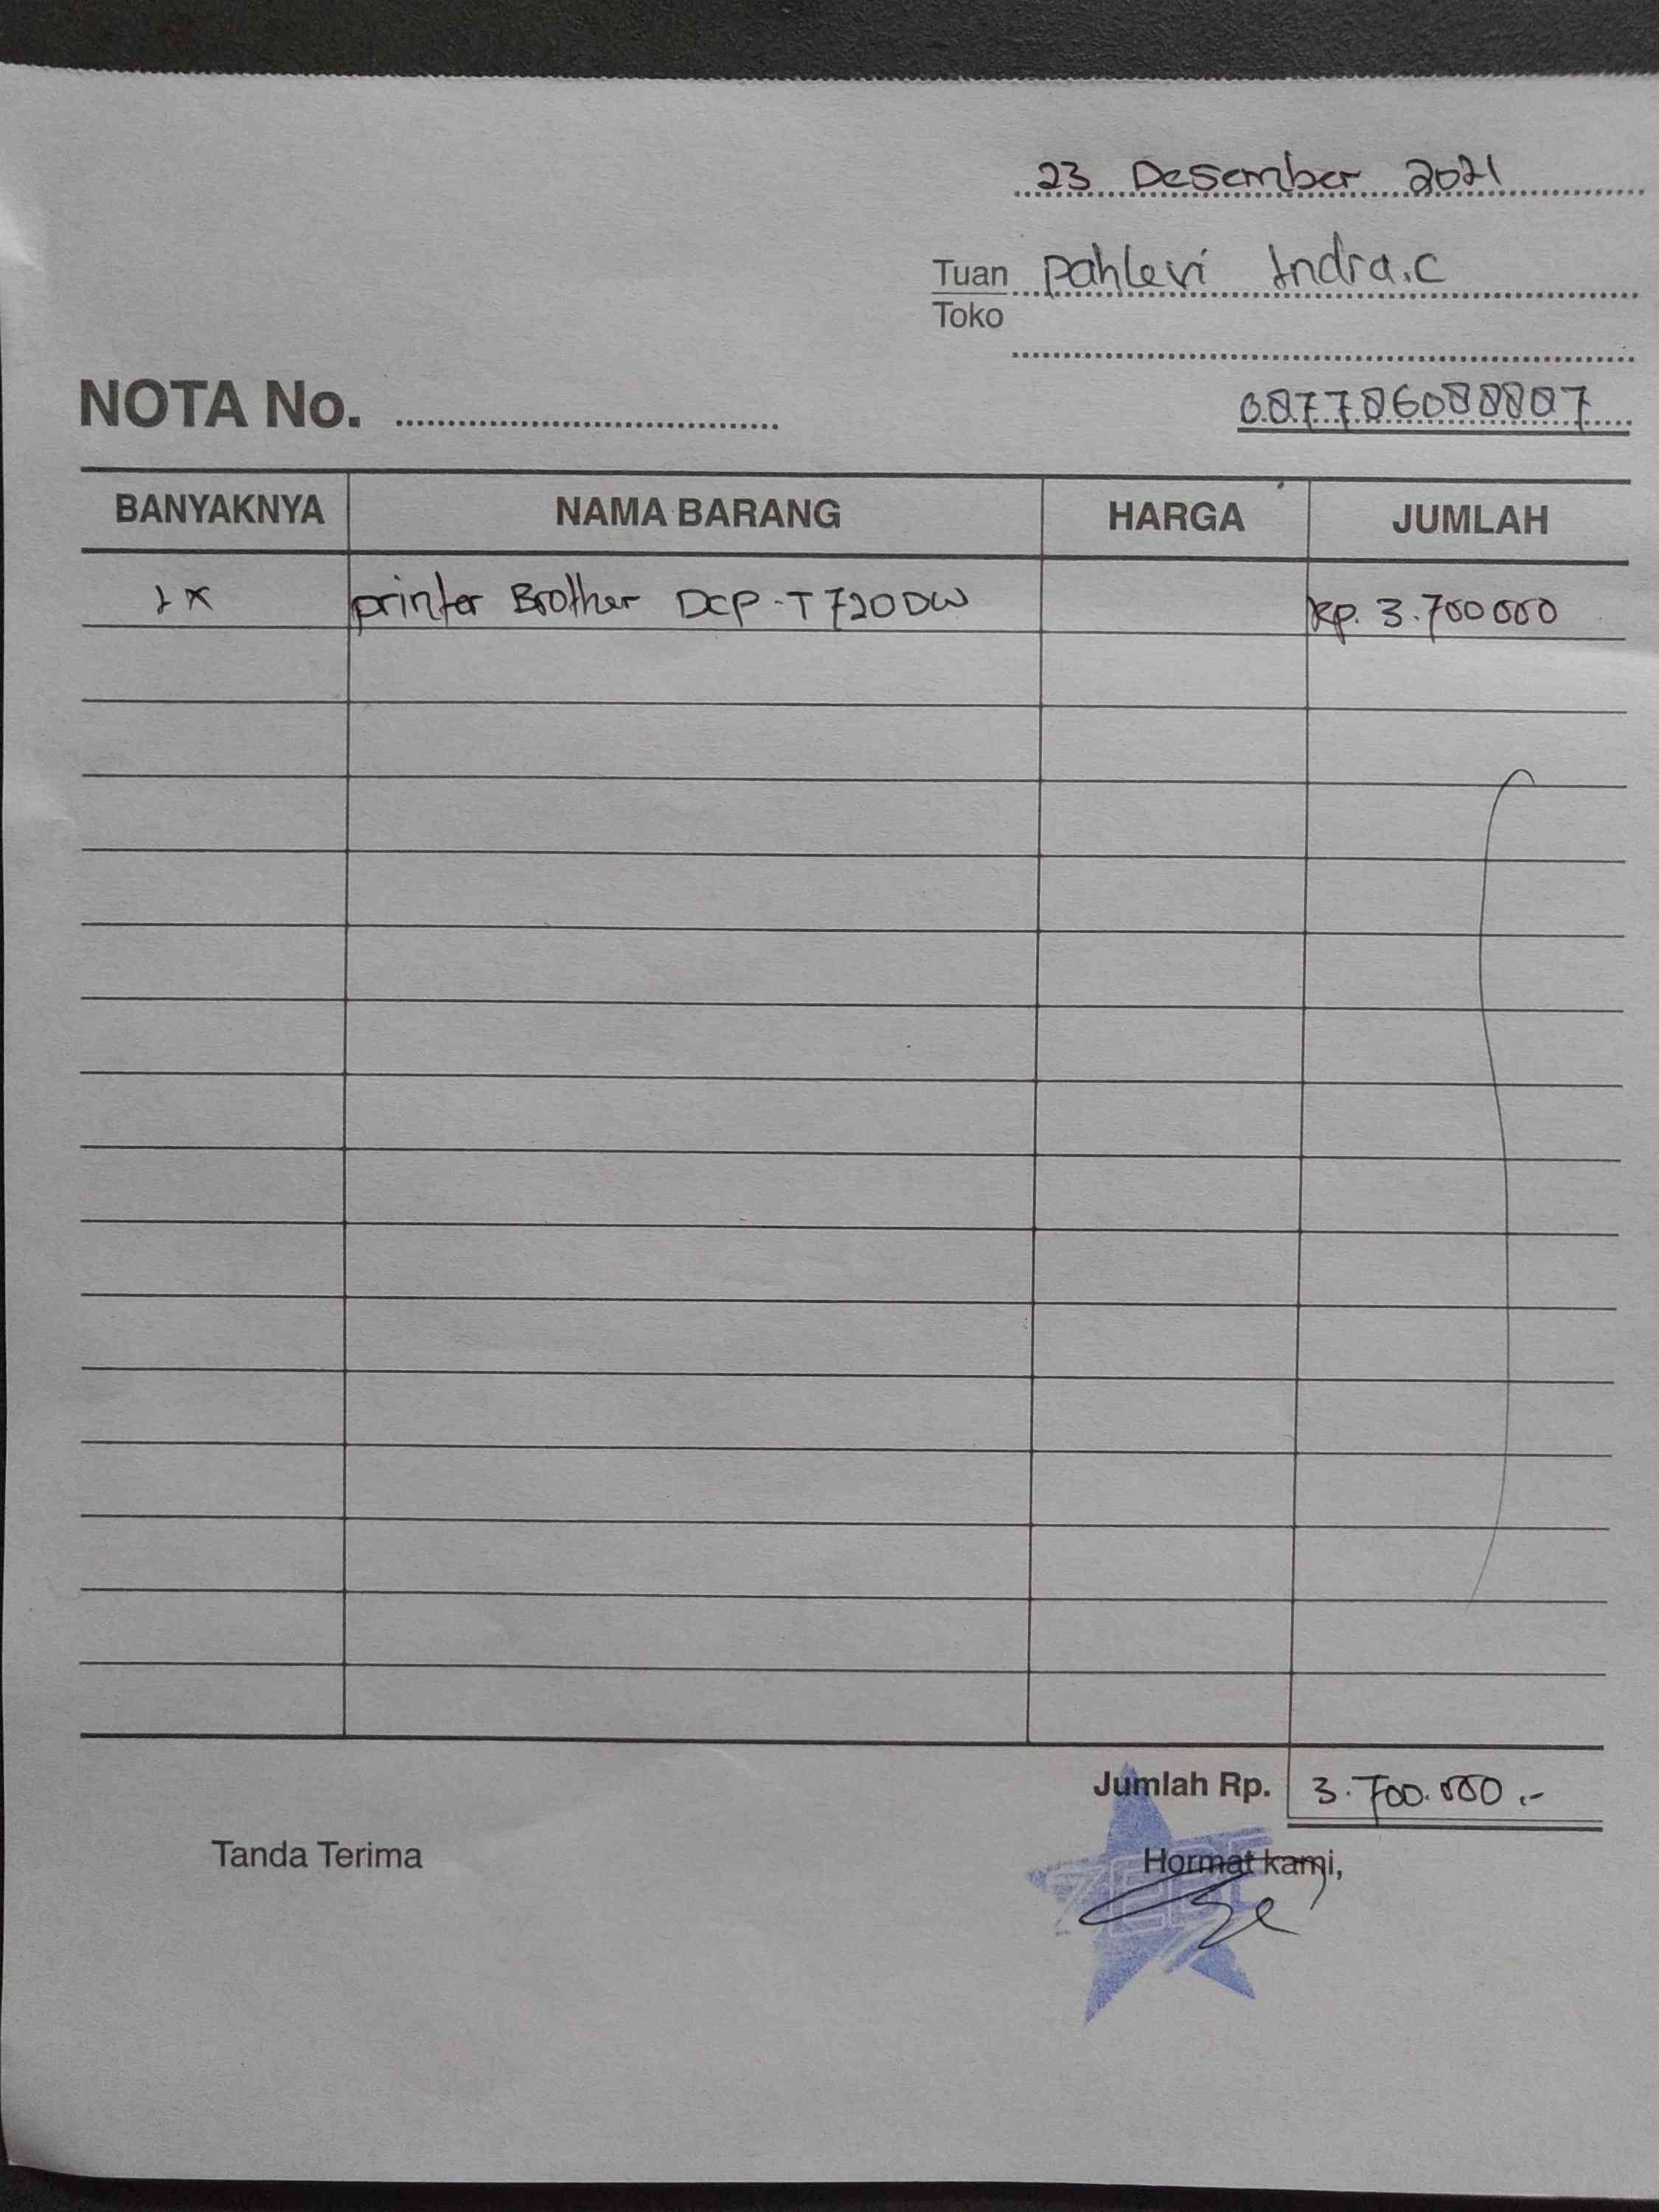 23 Desember 2021
Tuan Pahlevi Indra.C
Toko
NOTA No.
087786088887
BANYAKNYA NAMA BARANG HARGA JUMLAH
1x printer Brother DCP-T720DW Rp. 3.700000
Jumlah Rp. 3.700.000.-
Tanda Terima Hormat kami,